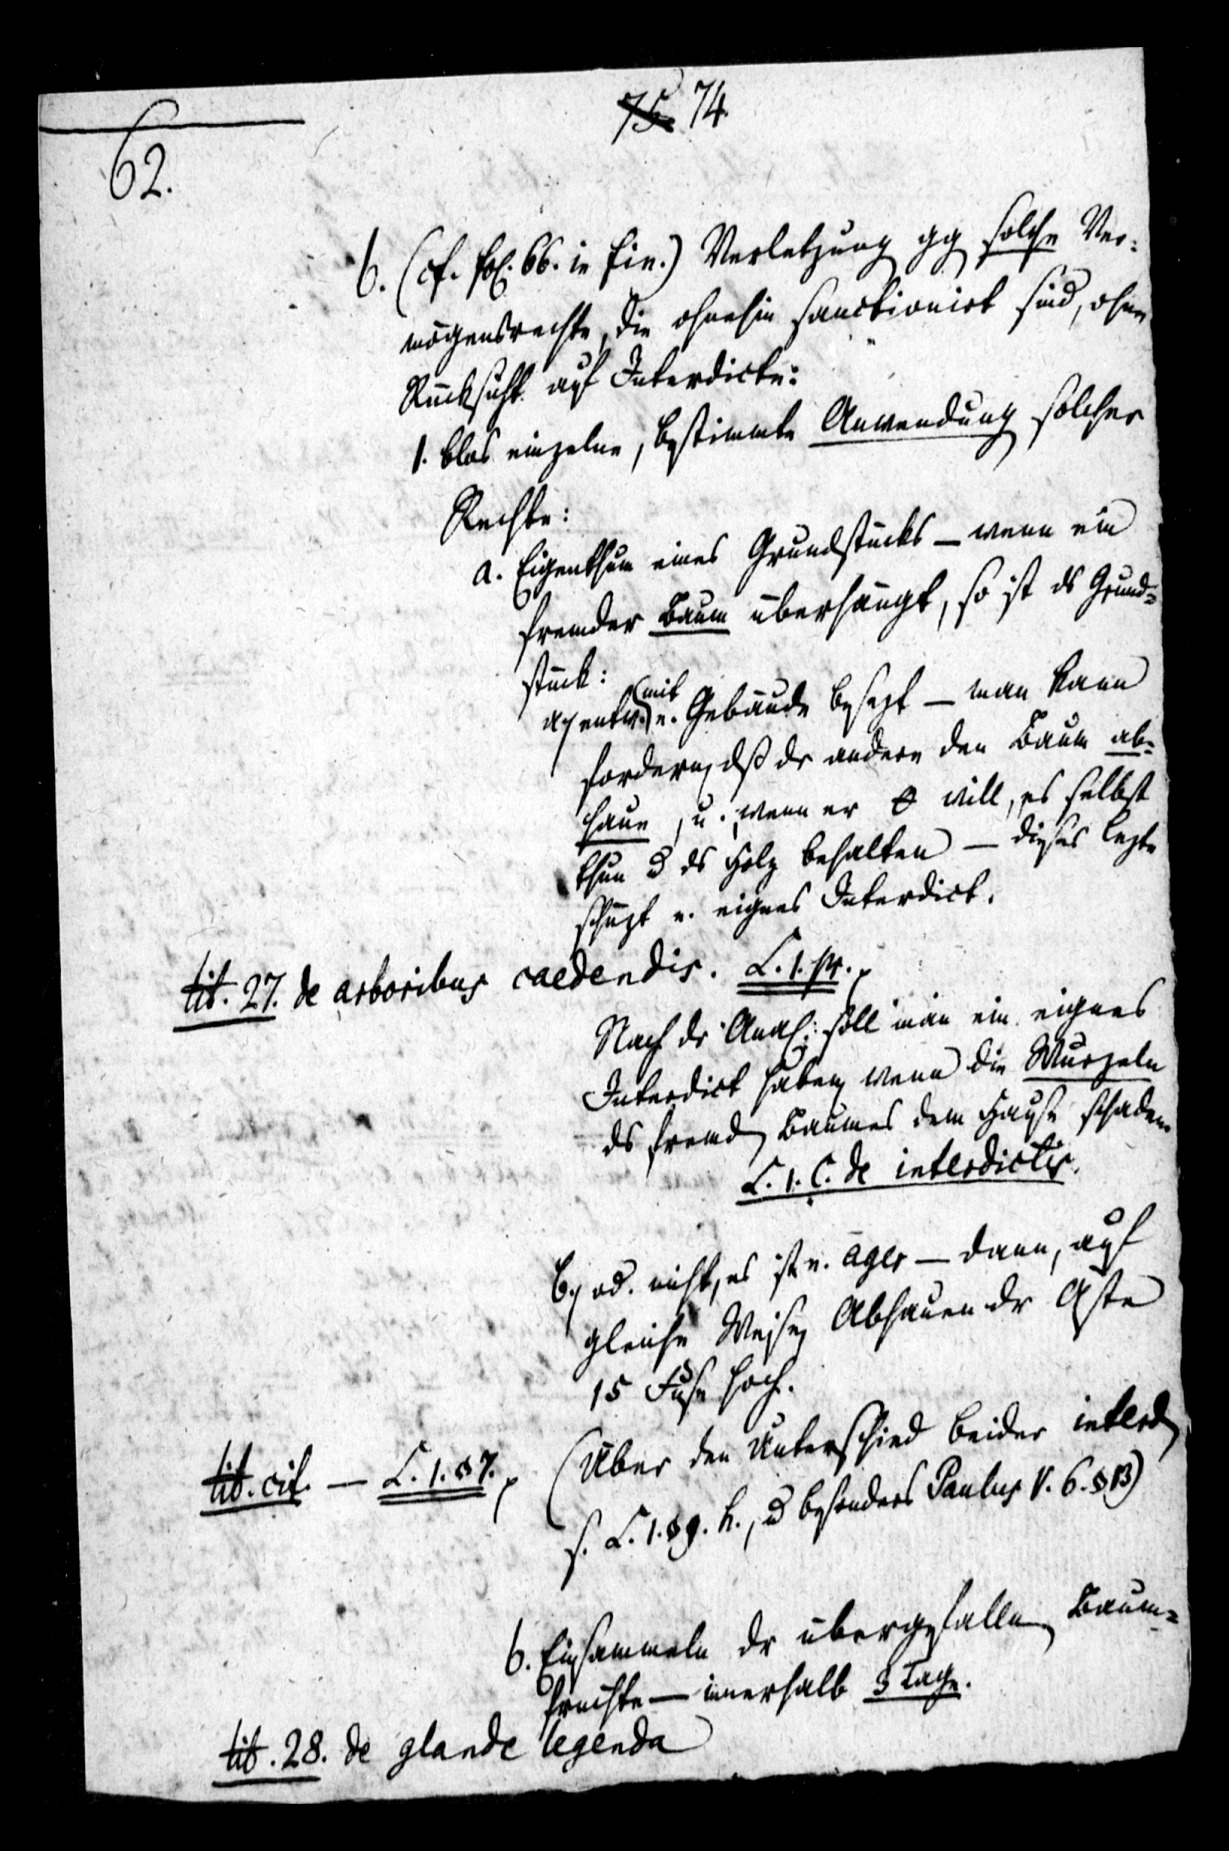 75. 74.
62.
b. (cf. fol. 66. in fin.) Verletzung gg solche Ver-
mögensrechte, die ohnehin sanctionirt sind, ohne
Rücksicht auf Interdicte:
1. blos einzelne, bestimmte Anwendung solcher
Rechte:
a. Eigenthum eines Grundstücks — wenn ein
fremder Baum überhängt, so ist ds Grund-
stück:
a) entw. mit e. Gebäude besezt — man kann
fordern, dß dr andere den Baum ab-
haue, u. wenn er θ will, es selbst
thun u ds Holz behalten — dieses lezte
schüzt e. eignes Interdict.
tit. 27. de arboribus caedendis. L. 1. pr.
Nach dr soll man ein eignes
Interdict haben, wenn die Wurzeln
ds fremd Baumes dem Hause schaden
L. 1. C. de interdictis.
b) od. nicht, es ist e. ager — dann, auf
gleiche Weise, Abhauen dr Äste
15 Fuße hoch.
tit. cit. — L. 1. § 7.
(Über den Unterschied beider interd
s. L. 1. § 9. h., u besonders Paulus V. 6. § 13)
b. Einsammeln dr übergefallen Baum-
früchte — innerhalb 3 Tage.
tit. 28. de glande legenda